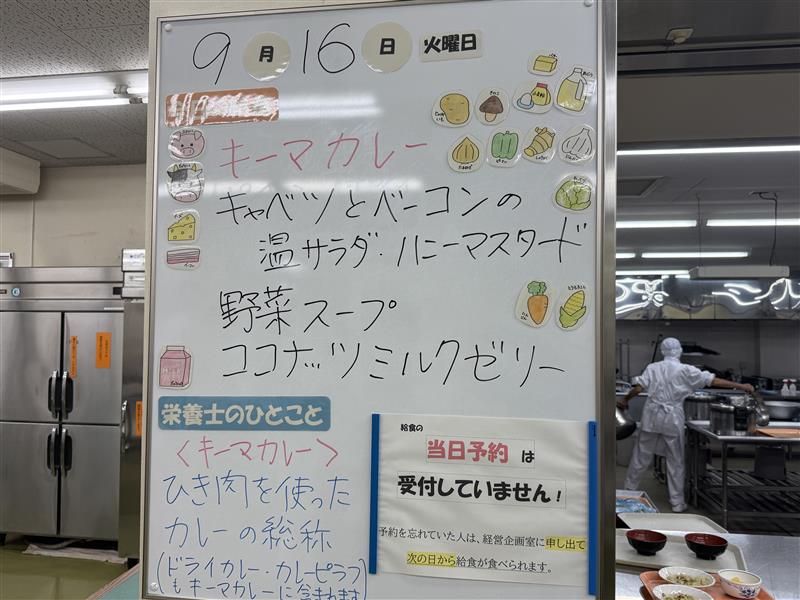 9月16日 火曜日
キーマカレー
キャベツとベーコンの
温サラダ・ハニーマスタード
野菜スープ
ココナッツミルクゼリー
栄養士のひとこと
<キーマカレー>
ひき肉を使った
カレーの総称
(ドライカレー・カレーピラフ
もキーマカレーに含まれます
給食の
当日予約は
受付していません!
予約を忘れていた人は、経営企画室に申し出て
次の日から給食が食べられます。